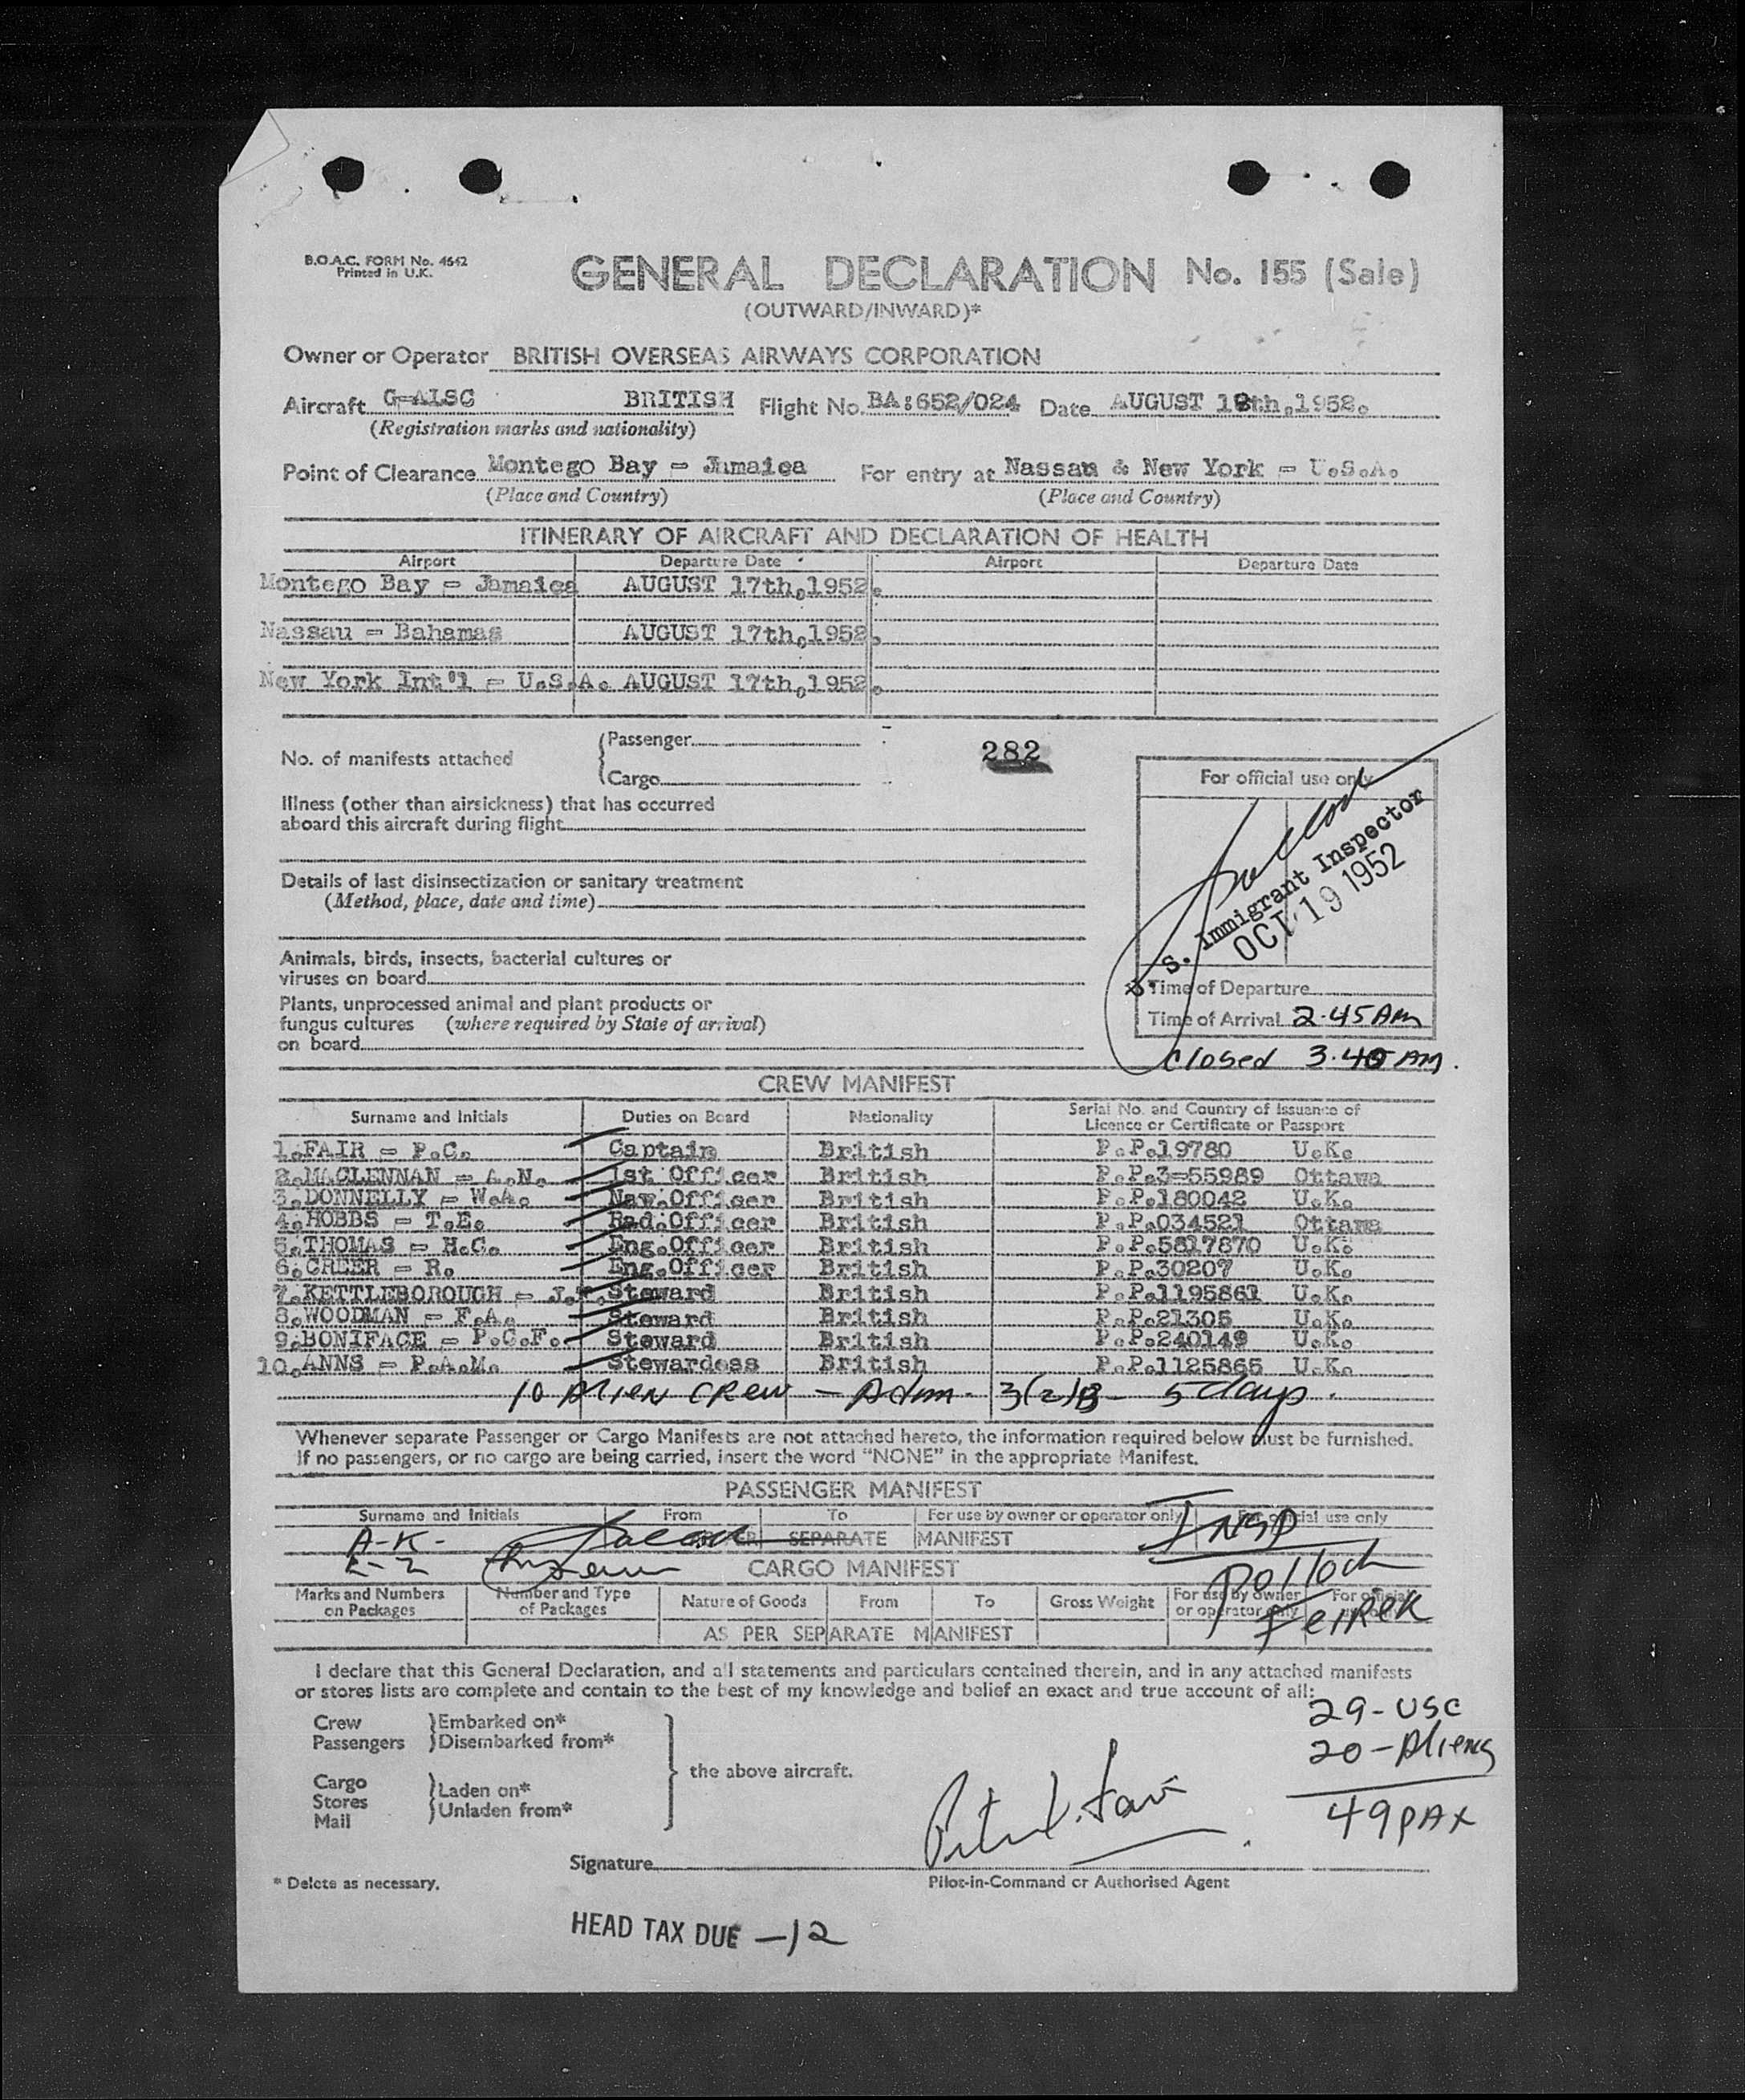 B.O.A.C. FORM No. 4642
Printed in U.K.
GENERAL DECLARATION No. 155 (Sale)
(OUTWARD/INWARD)*
Owner or Operator BRITISH OVERSEAS AIRWAYS CORPORATION
Aircraft G-ALSC BRITISH Flight No. BA:652/024 Date AUGUST 18th,1952.
(Registration marks and nationality)
Point of Clearance Montego Bay - Jamaica For entry at Nassau & New York - U.S.A.
(Place and Country) (Place and Country)
ITINERARY OF AIRCRAFT AND DECLARATION OF HEALTH
Airport Departure Date Airport Departure Date
Montego Bay - Jamaica AUGUST 17th,1952.
Nassau - Bahamas AUGUST 17th,1952.
New York Int'l - U.S.A. AUGUST 17th,1952.
No. of manifests attached
Passenger
Cargo
282
For official use only
Illness (other than airsickness) that has occurred
aboard this aircraft during flight
Details of last disinsectization or sanitary treatment
(Method, place, date and time)
S. Immigrant Inspector
OCT 19 1952
Animals, birds, insects, bacterial cultures or
viruses on board
Time of Departure
Plants, unprocessed animal and plant products or
fungus cultures (where required by State of arrival)
on board
Time of Arrival 2.45 AM
Closed 3.40 AM.
CREW MANIFEST
Surname and Initials Duties on Board Nationality Serial No. and Country of Issuance of
Licence or Certificate or Passport
1.FAIR - P.C. Captain British P.P.19780 U.K.
2.MACLENNAN - A.N. 1st Officer British P.P.3-55989 Ottawa
3.DONNELLY - W.A. Nav.Officer British P.P.180042 U.K.
4.HOBBS - T.E. Rad.Officer British P.P.034521 Ottawa
5.THOMAS - H.C. Eng.Officer British P.P.5817870 U.K.
6.CREER - R. Eng.Officer British P.P.30207 U.K.
7.KETTLEBOROUGH - J. Steward British P.P.1195861 U.K.
8.WOODMAN - F.A. Steward British P.P.21305 U.K.
9.BONIFACE - P.C.F. Steward British P.P.240149 U.K.
10.ANNS - P.A.M. Stewardess British P.P.1125865 U.K.
10 Alien Crew - Adm. 3(2)B - 5 days.
Whenever separate Passenger or Cargo Manifests are not attached hereto, the information required below must be furnished.
If no passengers, or no cargo are being carried, insert the word "NONE" in the appropriate Manifest.
PASSENGER MANIFEST
Surname and Initials From To For use by owner or operator only For official use only
A-K- SEPARATE MANIFEST INSP
L-Z
CARGO MANIFEST
Pollock
Marks and Numbers
on Packages
Number and Type
of Packages
Nature of Goods From To Gross Weight
For use by owner
or operator only
For official
AS PER SEPARATE MANIFEST
I declare that this General Declaration, and all statements and particulars contained therein, and in any attached manifests
or stores lists are complete and contain to the best of my knowledge and belief an exact and true account of all:
Crew
Passengers
Embarked on*
Disembarked from*
Cargo
Stores
Mail
Laden on*
Unladen from*
the above aircraft.
29-USC
20-Aliens
49 PAX
Signature
* Delete as necessary.
Pilot-in-Command or Authorised Agent
HEAD TAX DUE -12